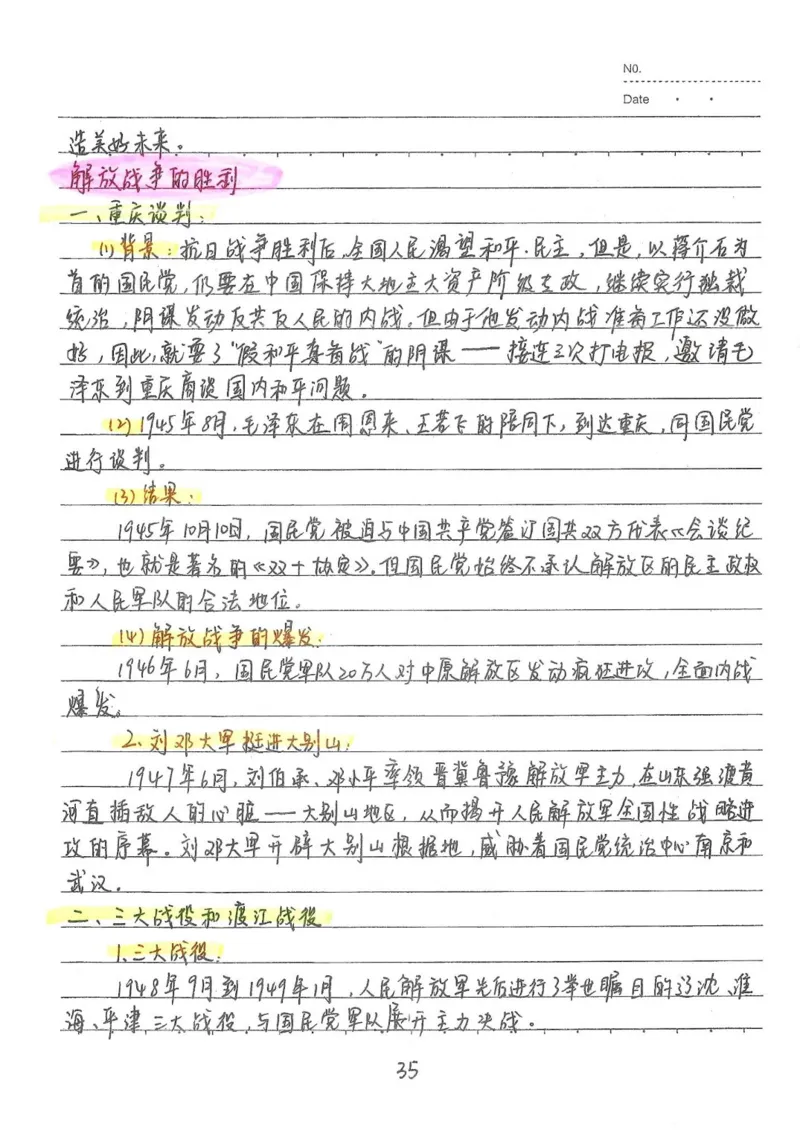 NO.
Date
造美好未来。
解放战争的胜利
一、重庆谈判：
(1)背景：抗日战争胜利后,全国人民渴望和平、民主，但是，以蒋介石为
首的国民党，仍要在中国保持大地主大资产阶级专政，继续实行独裁
统治，阴谋发动反共反人民的内战。但由于他发动内战准备工作还没做
好，因此，就耍了“假和平真备战”的阴谋——接连三次打电报，邀请毛
泽东到重庆商谈国内和平问题。
(2)1945年8月，毛泽东在周恩来、王若飞的陪同下，到达重庆，同国民党
进行谈判。
(3)结果：
1945年10月10日，国民党被迫与中国共产党签订国共双方代表《会谈纪
要》，也就是著名的《双十协定》。但国民党始终不承认解放区的民主政权
和人民军队的合法地位。
(4)解放战争的爆发：
1946年6月，国民党军队20万人对中原解放区发动疯狂进攻，全面内战
爆发。
2.刘邓大军挺进大别山：
1947年6月，刘伯承、邓小平率领晋冀鲁豫解放军主力，在山东强渡黄
河直插敌人的心脏——大别山地区，从而揭开人民解放军全国性战略进
攻的序幕。刘邓大军开辟大别山根据地，威胁着国民党统治中心南京和
武汉。
二、三大战役和渡江战役
1.三大战役：
1948年9月到1949年1月，人民解放军先后进行了举世瞩目的辽沈、淮
海、平津三大战役，与国民党军队展开主力决战。
35